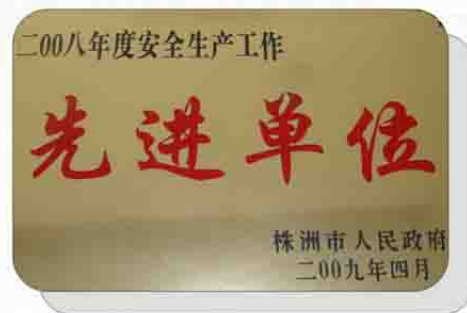 二00八年度安全生产工作
先进单位
株洲市人民政府
二00九年四月